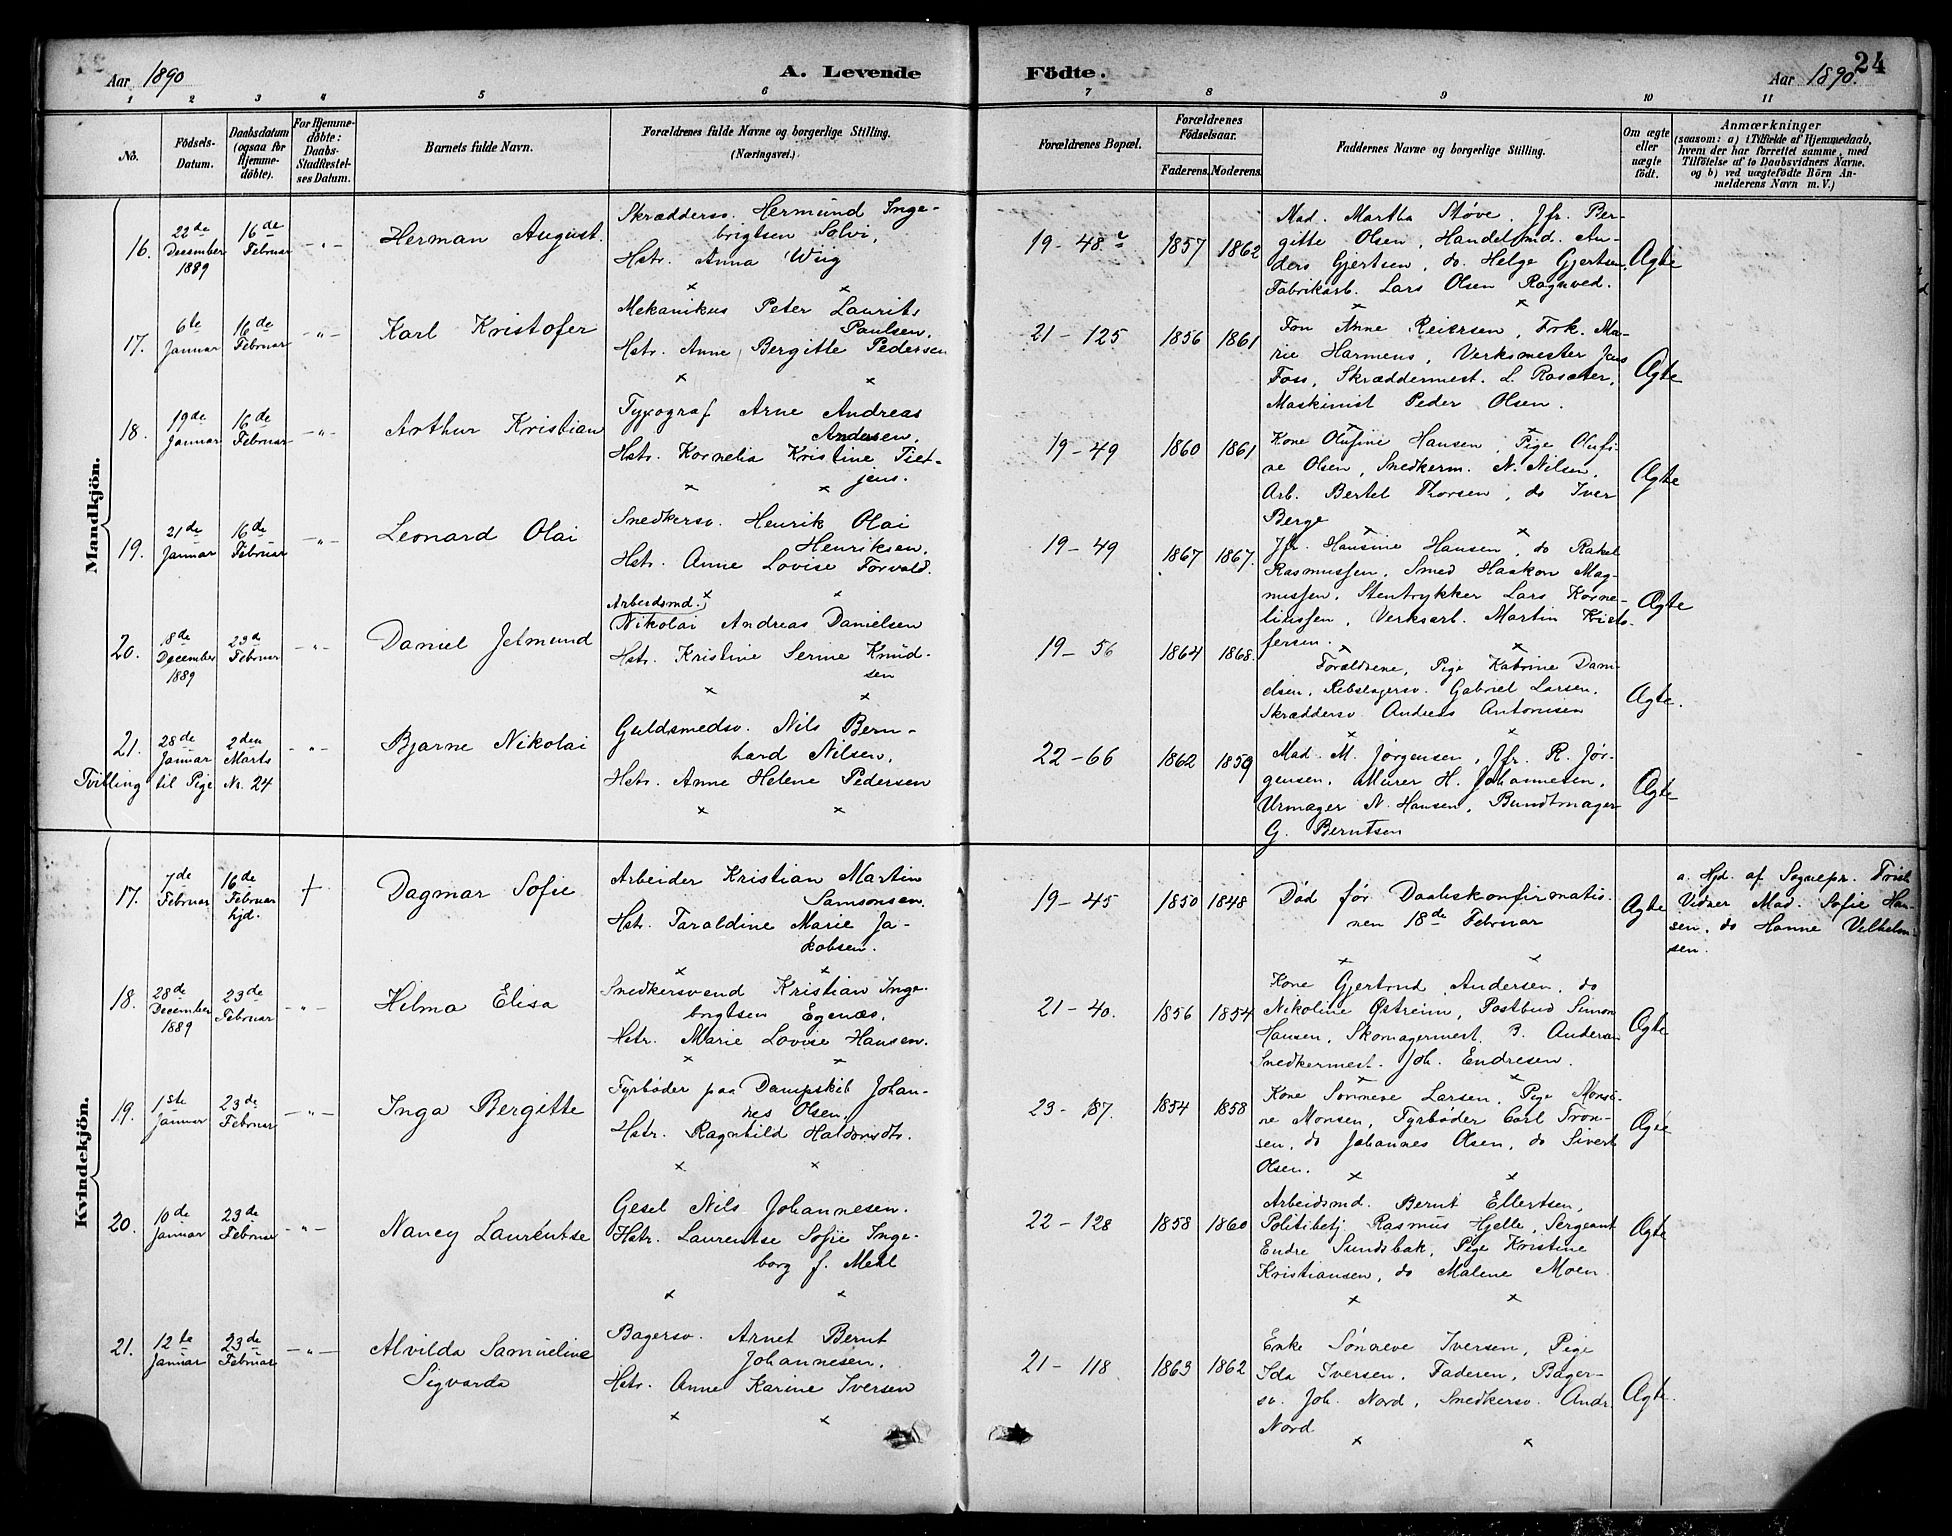 Aar 1890 A. Levende Födte. Aar 1890. 24
1 2 3 4 5 6 7 8 9 10 11
No.
Födsels-Datum.
Daabsdatum (ogsaa for Hjemme-döbte).
For Hjemme-döbte: Daabs-Stadfæstel-ses Datum.
Barnets fulde Navn.
Forældrenes fulde Navne og borgerlige Stilling. (Næringsvei.)
Forældrenes Bopæl.
Forældrenes Födselsaar.
Faderens. Moderens.
Faddernes Navne og borgerlige Stilling.
Om ægte eller uægte födt.
Anmærkninger
(saasom: a) i Tilfælde af Hjemmedaab,
hvem der har forrettet samme, med
Tilföielse af to Daabsvidners Navne,
og b) ved uægtefödte Börn An-
melderens Navn m. V.)
Mandkjön.
16.
22de December 1889
16de Februar
- " -
Herman August.
Skræddersv. Hermund Inge-
brigtsen Solvi,
Hstr. Anna Wiig
19 - 48
1857
1862
Mad. Martha Støve, Jfr. Ber-
gitte Olsen, Handelsmd. An-
ders Gjertsen, do. Helge Gjertsen,
Fabrikarb. Lars Olsen Ragnved.
Ægte
17.
6te Januar
16de Februar
- " -
Karl Kristofer
Mekanikus Peter Laurits
Paulsen,
Hstr. Anne Bergitte Pedersen
21 - 125
1856
1861
Fru Anne Reiersen, Frk. Ma-
rie Harmens, Verksmester Jens
Foss, Skræddermest. L. Rosæter,
Maskinist Peder Olsen.
Ægte
18.
19de Januar
16de Februar
- " -
Arthur Kristian
Typograf Arne Andreas
Andersen,
Hstr. Kornelia Kristine Tiet-
jens.
19 - 49
1860
1861
Kone Olufine Hansen, Pige Olufi-
ne Olsen, Snedkerm. N. Nilsen,
Arb. Bertel Thorsen, do Iver
Berge
Ægte
19.
21de Januar
16de Februar
- " -
Leonard Olai
Snedkersv. Henrik Olai
Henriksen.
Hstr. Anne Lovise Torvald.
19 - 49
1867
1867.
Jfr. Hansine Hansen, do Rakel
Rasmussen, Smed Haakon Mag-
nussen, Stentrykker Lars Korne-
liussen, Verksarb. Martin Kristo-
fersen.
Ægte
20.
8de December 1889
23de Februar
- " -
Daniel Jelmund
Arbeidsmd.
Nikolai Andreas Danielsen
Hstr. Kristine Serine Knud-
sen
19 - 56
1864
1868.
Forældrene, Pige Katrine Dani-
elsen, Rebslagersv. Gabriel Larsen,
Skræddersv. Andreas Antonisen
Ægte.
21.
28de Januar
2den Marts
- " -
Tvilling til Pige Nr. 24
Bjarne Nikolai
Guldsmedsv. Nils Bern-
hard Nilsen,
Hstr. Anne Helene Pedersen
22 - 66
1862
1859
Mad. M. Jørgensen, Jfr. R. Jør-
gensen, Murer H. Johannesen,
Urmager N. Hansen, Bundtmager
G. Berntsen
Ægte
Kvindekjön.
17.
7de Februar
16de Februar hjd.
†
Dagmar Sofie
Arbeider Kristian Martin
Samsonsen,
Hstr. Taraldine Marie Ja-
kobsen.
19 - 45
1850
1848
Død før Daabskonfirmatio-
nen 18de Februar
Ægte
a. Hjd. af Sognepr.
Vidner Mad. Sofie Han-
sen, do Hanne Vilhelm-
sen.
18.
28de December 1889
23de Februar
- " -
Hilma Elisa
Snedkersvend Kristian Inge-
brigtsen Egenæs.
Hstr. Marie Lovise Hansen.
21 - 40.
1856
1854
Kone Gjertrud Andersen, do
Nikoline Østreim, Postbud Simon
Hansen, Skomagermest. B. Andersen
Snedkermest. Joh. Endresen.
Ægte
19.
1ste Januar
23de Februar
- " -
Inga Bergitte
Fyrbøder paa Dampskib Johan-
nes Olsen,
Hstr. Ragnhild Haldorsdtr.
23 - 187.
1854
1858
Kone Sønneve Larsen, Pige Monsi-
ne Monsen, Fyrbøder Carl Tron-
sen, do Johannes Olsen, do Sivert
Olsen.
Ægte
20.
10de Januar
23de Februar
- " -
Nancy Laurentse
Gesel Nils Johannesen.
Hstr. Laurentse Sofie Inge-
borg f. Mehl
22 - 128
1858
1860
Arbeidsmd. Bernt Ellertsen,
Politibetj. Rasmus Hjelle, Sergeant
Endre Sundsbak, Pige Kristine
Kristiansen, do Malene Moen.
Ægte
21.
12te Januar
23de Februar
- " -
Alvilda Samueline
Sigvarda
Bagersv. Arnet Bernt
Johannesen.
Hstr. Anne Karine Iversen
21 - 118
1863
1862
Enke Sønneve Iversen, Pige
Ida Iversen, Faderen, Bager-
sv. Joh. Nord, Snedkersv. Andr.
Nord
Ægte.